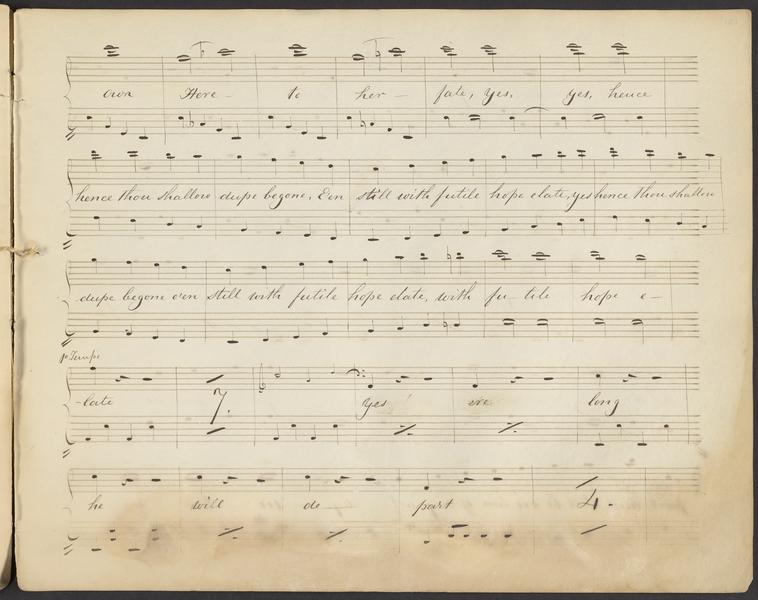 own Here - to her - fate, yes, yes, hence
hence thou shallow dupe begone, E'en still with futile hope elate, yes hence thou shallow
dupe begone e'en still with futile hope elate, with fu - tile hope e -
po Tempo
- late 7. yes ere long
he will de part 4.